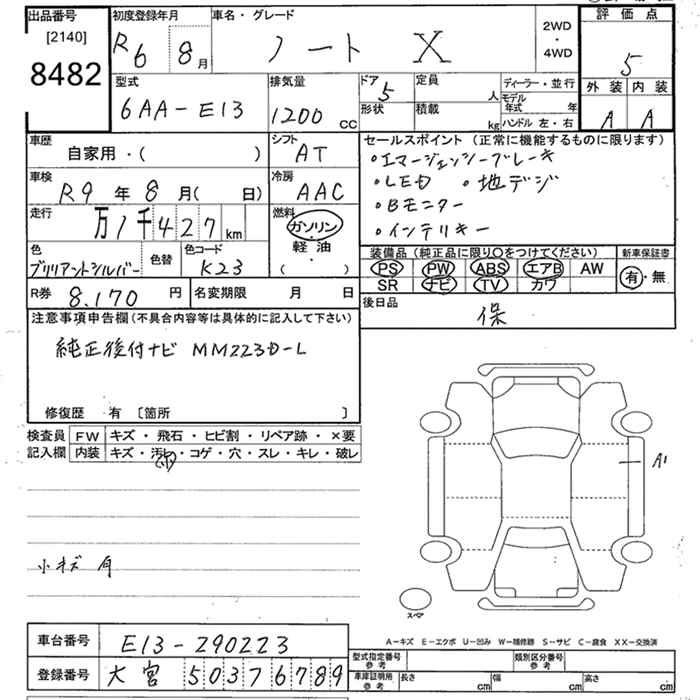 出品番号
[2140]
8482
初度登録年月
R6 8月
車名・グレード
ノート X
2WD
・
4WD
評価点
5
外装 内装
A A
型式
6AA-E13
排気量
1200 CC
ドア 5
形状
定員 人
積載 kg
ディーラー・並行
モデル年式 年
ハンドル 左・右
車歴
自家用・( )
シフト
AT
車検
R9 年 8 月( 日)
冷房
AAC
走行
万 1千 4 2 7 km
燃料
ガソリン
・
軽油
・
( )
色
ブリリアントシルバー
色替
色コード
K23
R券 8,170 円
名変期限 月 日
セールスポイント (正常に機能するものに限ります)
・エマージェンシーブレーキ
・LED ・地デジ
・Bモニター
・インテリキー
装備品 (純正品に限り○をつけてください)
PS PW ABS エアB AW
SR ナビ TV カワ
新車保証書
有・無
後日品
保
注意事項申告欄(不具合内容等は具体的に記入して下さい)
純正後付ナビ MM223D-L
修復歴 有 [箇所 ]
検査員記入欄
FW キズ・飛石・ヒビ割・リペア跡・×要
内装 キズ・汚レ・コゲ・穴・スレ・キレ・破レ
(小)
小キズ 有
A1
スペア
A-キズ E-エクボ U-凹み W-補修跡 S-サビ C-腐食 XX-交換済
車台番号 E13-290223
登録番号 大宮 503 7 6789
型式指定番号 参考
類別区分番号 参考
車庫証明用 参考 長さ cm 幅 cm 高さ cm